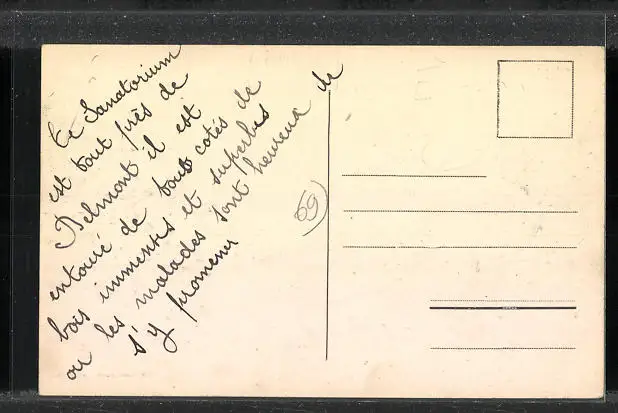 Ce Sanatorium
est tout près de
Belmont il est
entouré de tous cotés de
bois immenses et superbes
ou les malades sont heureux de
s'y promener
69